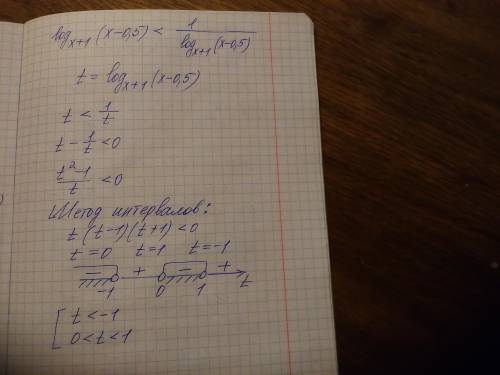 log_{x+1} (x-0,5) < \frac{1}{log_{x+1} (x-0,5)}
t = log_{x+1} (x-0,5)
t < \frac{1}{t}
t - \frac{1}{t} < 0
\frac{t^2-1}{t} < 0
Метод интервалов:
t (t-1)(t+1) < 0
t = 0 t = 1 t = -1
- + - +
-1 0 1 t
[ t < -1
0 < t < 1